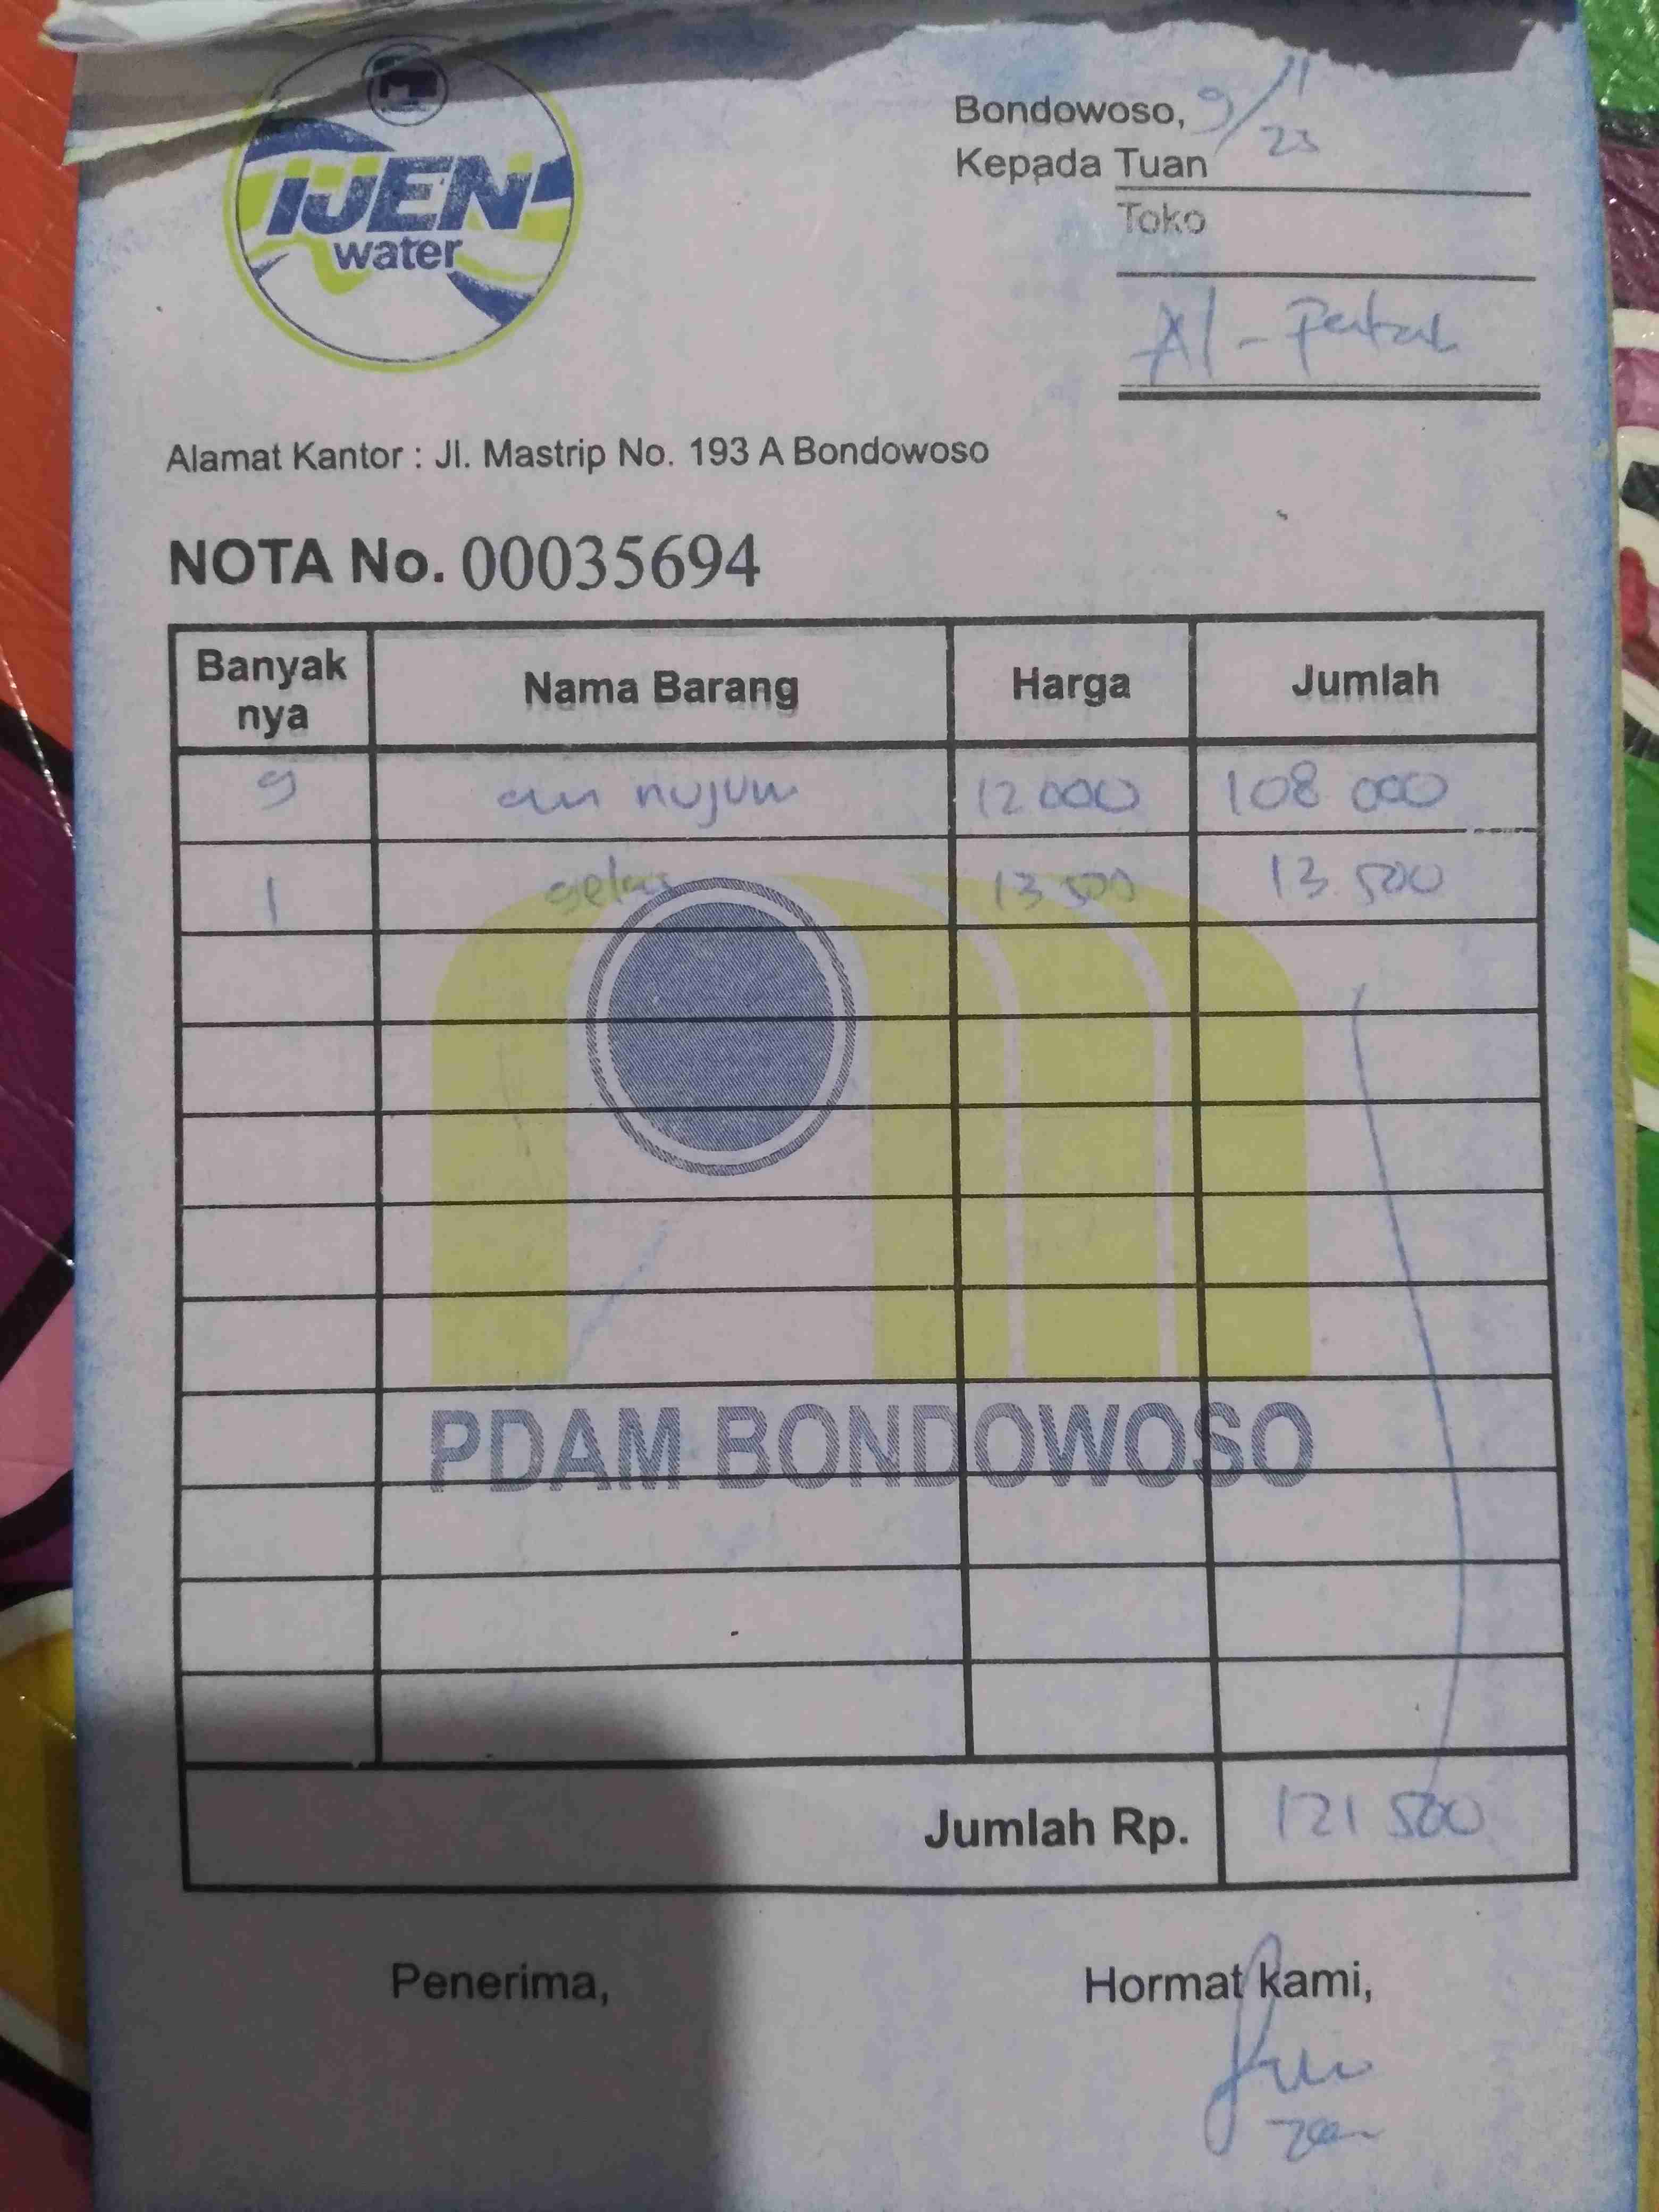 IJEN
water
Bondowoso, 9/11
23
Kepada Tuan
Toko
Al -
Alamat Kantor : Jl. Mastrip No. 193 A Bondowoso
NOTA No. 00035694
Banyak nya Nama Barang Harga Jumlah
9 an nujum 12 000 108 000
1 gelas 13 500 13.500
PDAM BONDOWOSO
Jumlah Rp. 121 500
Penerima, Hormat kami,